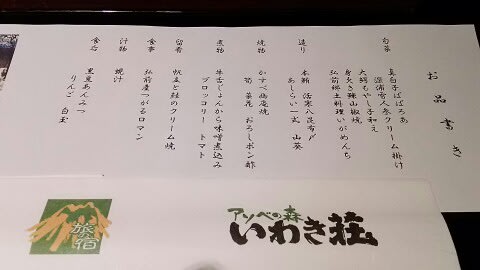 お品書き
旬菜 真白子ばばろあ
深浦雪人参クリーム掛け
大鰐もやし辛子和え
身欠き鰊山椒焼
弘前郷土料理いがめんち
造り 本鮪 活寒八昆布〆
あしらい一式 山葵
焼物 かすべ幽庵焼
筍 菜花 おろしポン酢
煮物 牛舌じょんから味噌煮込み
ブロッコリー トマト
留肴 帆立と鮭のクリーム焼
食事 弘前産つがるロマン
汁物 蜆汁
食后 黒豆あんみつ
りんご 白玉
旅宿
アソベの森
いわき荘